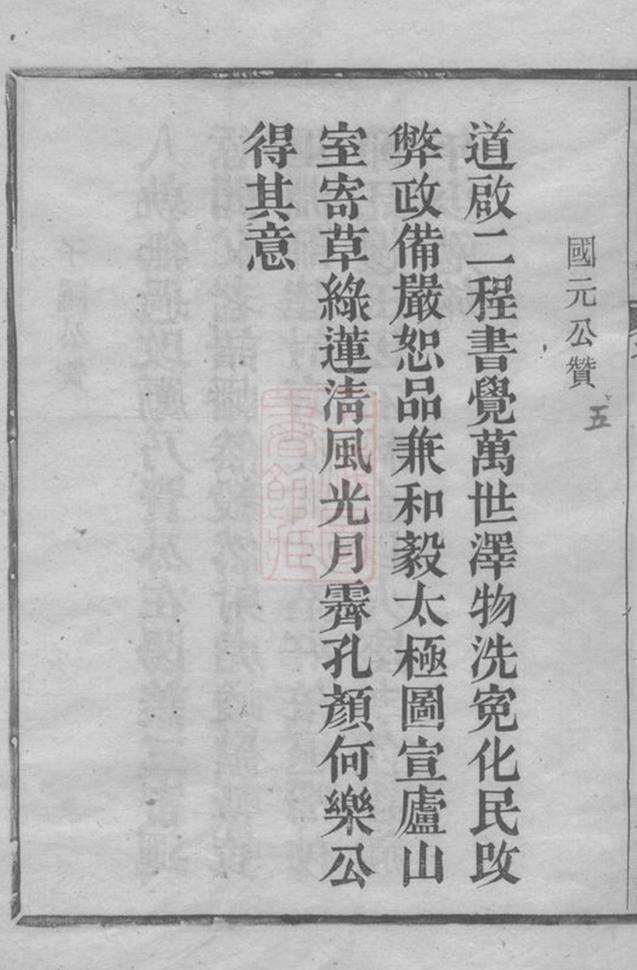 國元公贊 五
道啟二程書覺萬世澤物洗寃化民攺
弊政備嚴恕品兼和毅太極圖宣廬山
室寄草綠蓮淸風光月霽孔顏何樂公
得其意